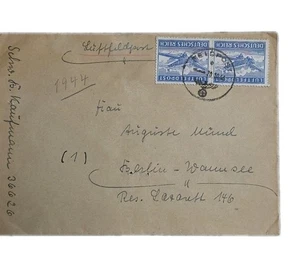 Luftfeldpost
DEUTSCHES REICH
DEUTSCHES REICH
LUFTFELDPOST
FELDPOST
1944
Frau
Auguste Münd
(1)
Berlin-Wannsee
Res. Lazarett 146
Schw. Br. Kaufmann 36626